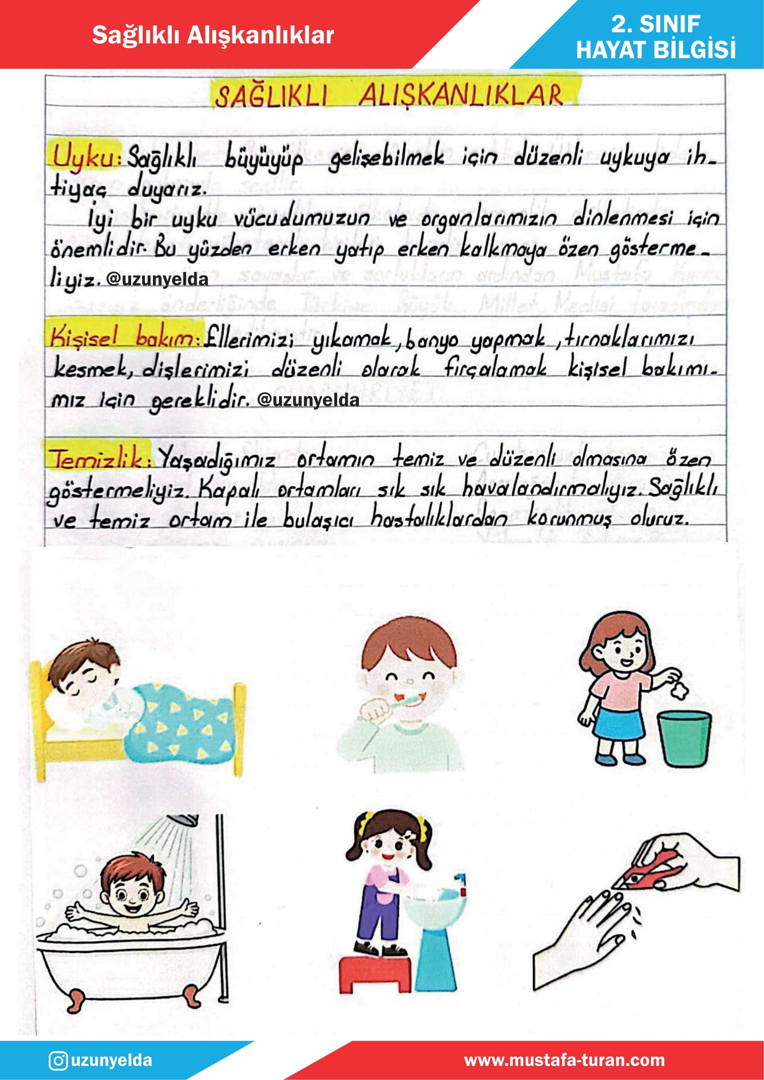 Sağlıklı Alışkanlıklar
2. SINIF
HAYAT BİLGİSİ
SAĞLIKLI ALIŞKANLIKLAR
Uyku: Sağlıklı büyüyüp gelişebilmek için düzenli uykuya ih-
tiyaç duyarız.
İyi bir uyku vücudumuzun ve organlarımızın dinlenmesi için
önemlidir. Bu yüzden erken yatıp erken kalkmaya özen gösterme-
liyiz. @uzunyelda
Kişisel bakım: Ellerimizi yıkamak, banyo yapmak, tırnaklarımızı
kesmek, dişlerimizi düzenli olarak fırçalamak kişisel bakımı-
mız için gereklidir. @uzunyelda
Temizlik: Yaşadığımız ortamın temiz ve düzenli olmasına özen
göstermeliyiz. Kapalı ortamları sık sık havalandırmalıyız. Sağlıklı
ve temiz ortam ile bulaşıcı hastalıklardan korunmuş oluruz.
uzunyelda
www.mustafa-turan.com